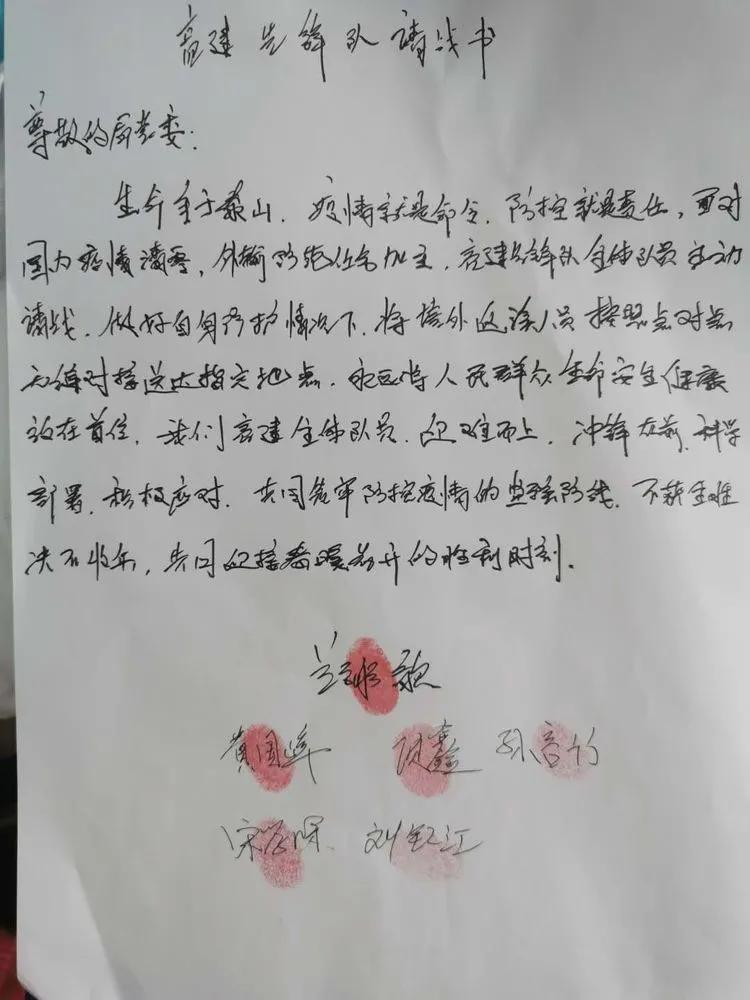 高建先锋队请战书
尊敬的局党委:
生命重于泰山，疫情就是命令，防控就是责任，面对
国内疫情,外输防任务加主，高建先锋队全体队员主动
请战，做好自身防护情况下，将境外返人员按照点对点
无缝对接送达指定地点，永远将人民群众生命安全健康
放在首位，我们高建全体队员，迎难而上，冲锋在前，科学
部署，积极应对，共同筑牢防控疫情的坚强防线，不获全胜
决不收兵，共同迎接春暖花开的胜利时刻。
黄国 鑫 孙
宋 刘江